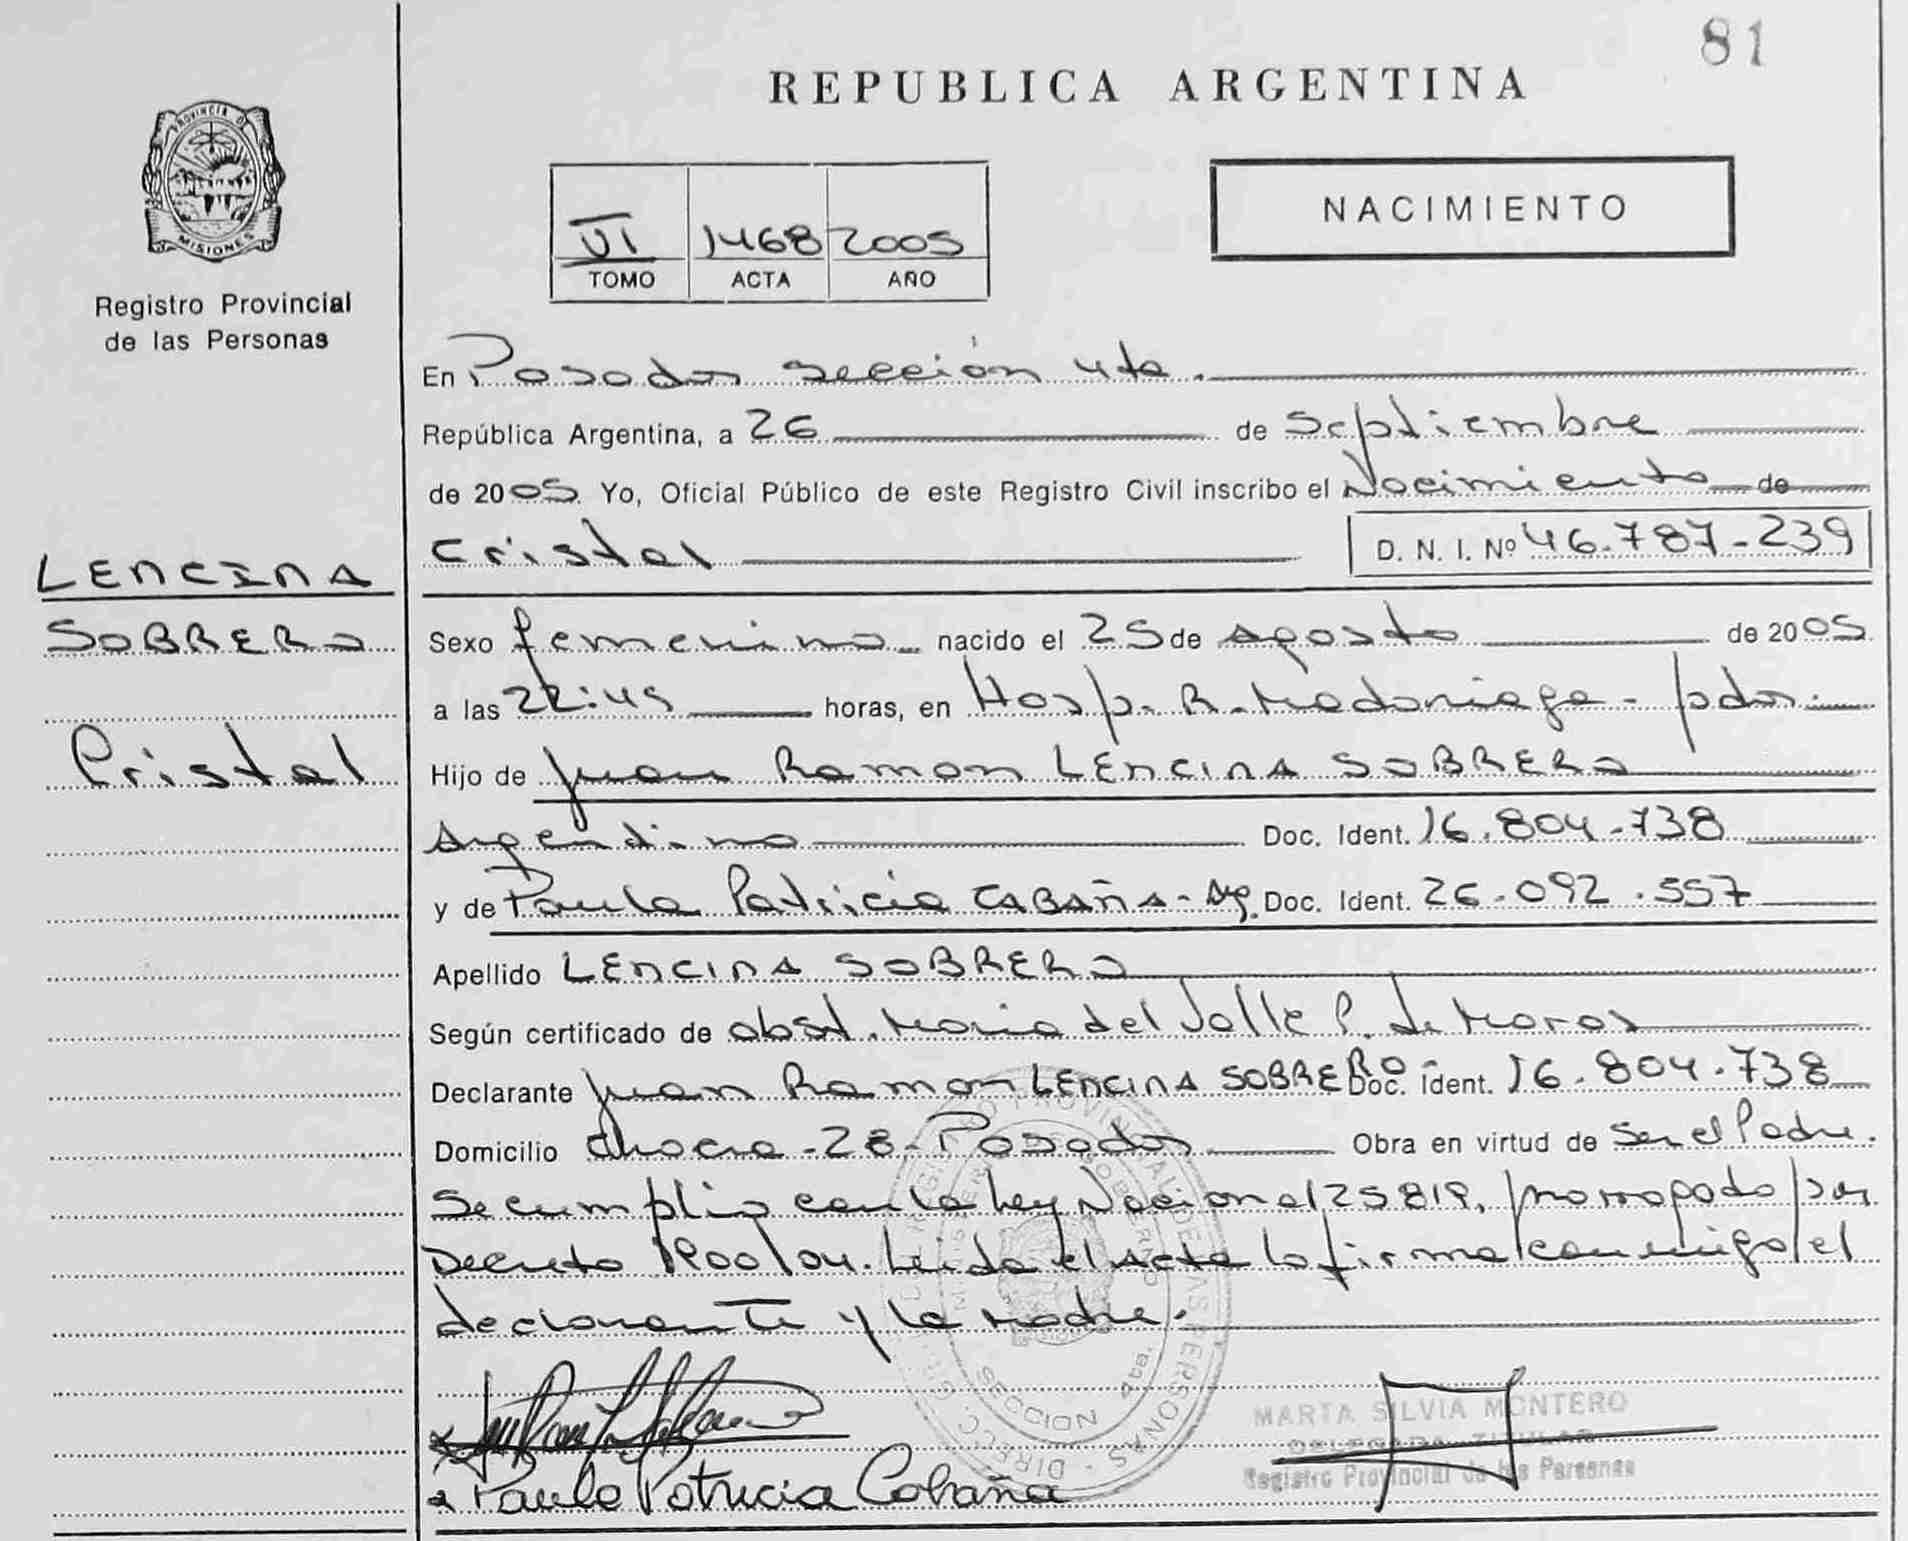 81
REPUBLICA ARGENTINA
PROVINCIA DE
MISIONES
Registro Provincial
de las Personas
VI 1468 2005
TOMO ACTA AÑO
NACIMIENTO
En Posadas sección 4ta.
República Argentina, a 26 de Septiembre
de 2005 Yo, Oficial Público de este Registro Civil inscribo el Nacimiento de
Cristal D. N. I. Nº 46.787-239
LENCINA
SOBRERO
Cristal
Sexo femenino nacido el 25 de Agosto de 2005
a las 22:45 horas, en Hosp. R. Madariaga - pdas.
Hijo de Juan Ramon LENCINA SOBRERO
Argentino Doc. Ident. 16.804.738
y de Paula Patricia CABAÑA - Arg. Doc. Ident. 26.092.557
Apellido LENCINA SOBRERO
Según certificado de obst. Maria del Valle P. de Moras
Declarante Juan Ramon LENCINA SOBRERO Doc. Ident. 16.804.738
Domicilio Chacra - 28 - Posadas Obra en virtud de Ser el Padre.
Se cumplio con la Ley Nacional 25819, prorrogado por
Decreto 1900/04. Leida el Acta la firma conmigo el
declarante y la Madre.
SECCION 4ta.
MARTA SILVIA MONTERO
DELEGADA TITULAR
Registro Provincial de las Personas
Paula Patricia Cabaña